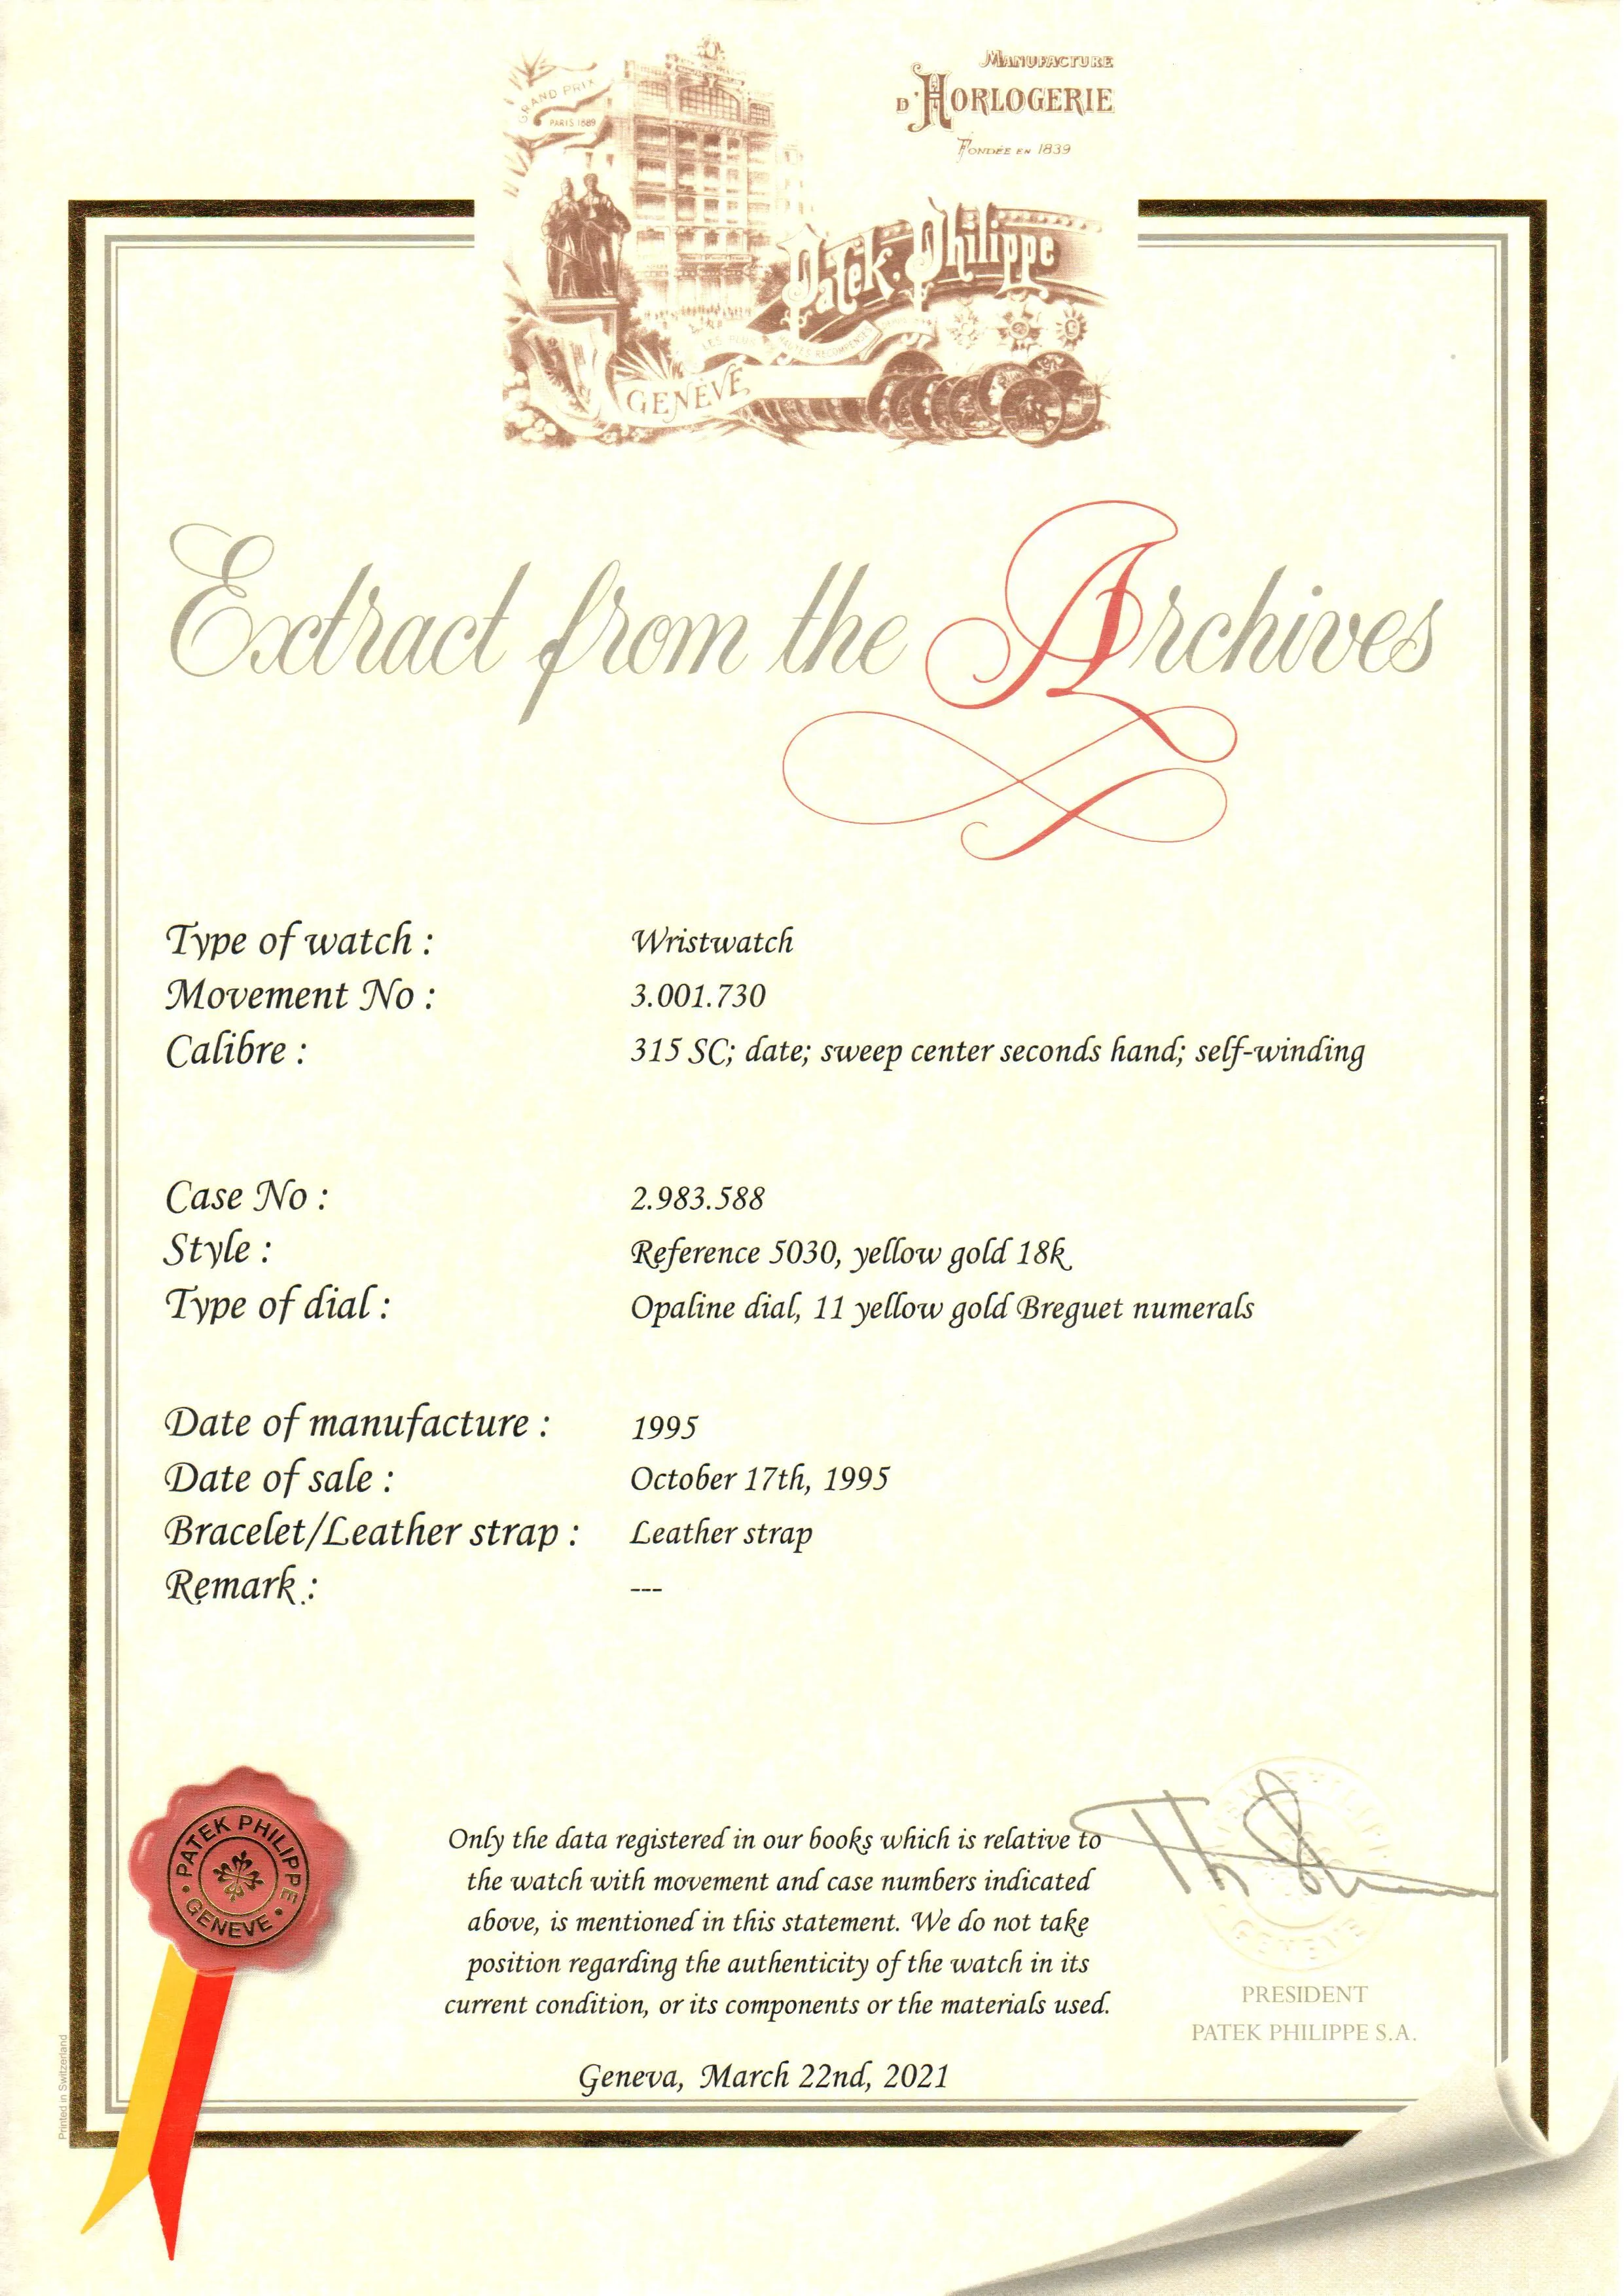 MANUFACTURE
D'HORLOGERIE
FONDÉE EN 1839
GRAND PRIX
PARIS 1889
Patek Philippe
LES PLUS HAUTES RECOMPENSES
GENÈVE
Extract from the Archives
Type of watch : Wristwatch
Movement No : 3.001.730
Calibre : 315 SC; date; sweep center seconds hand; self-winding
Case No : 2.983.588
Style : Reference 5030, yellow gold 18k
Type of dial : Opaline dial, 11 yellow gold Breguet numerals
Date of manufacture : 1995
Date of sale : October 17th, 1995
Bracelet/Leather strap : Leather strap
Remark : ---
PATEK PHILIPPE
GENEVE
Only the data registered in our books which is relative to
the watch with movement and case numbers indicated
above, is mentioned in this statement. We do not take
position regarding the authenticity of the watch in its
current condition, or its components or the materials used.
GENEVE
PRESIDENT
PATEK PHILIPPE S.A.
Geneva, March 22nd, 2021
Printed in Switzerland